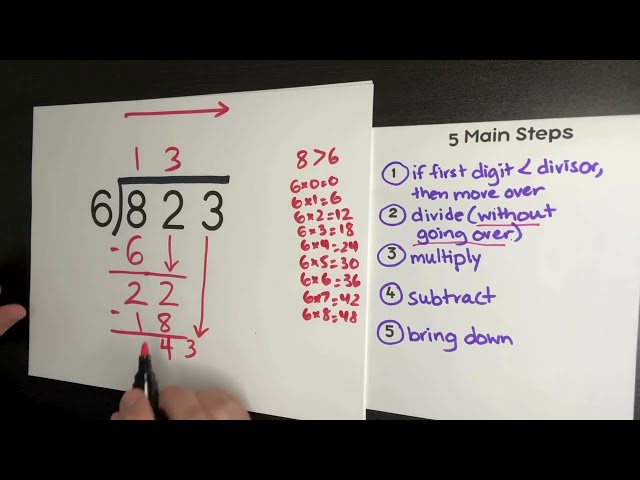 1 3
6)823
-6
22
-18
43
8>6
6×0=0
6×1=6
6×2=12
6×3=18
6×4=24
6×5=30
6×6=36
6×7=42
6×8=48
5 Main Steps
① if first digit < divisor,
then move over
② divide (without
going over)
③ multiply
④ subtract
⑤ bring down